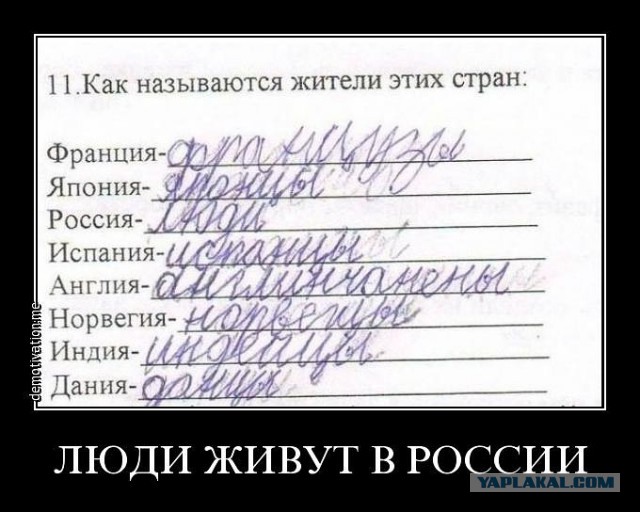 11.Как называются жители этих стран:
Франция-французы
Япония- японцы
Россия- люди
Испания-испанцы
Англия-англинчанены
Норвегия- норвежцы
Индия-индейцы
Дания-данцы
demotivation.me
ЛЮДИ ЖИВУТ В РОССИИ
YAPLAKAL.COM